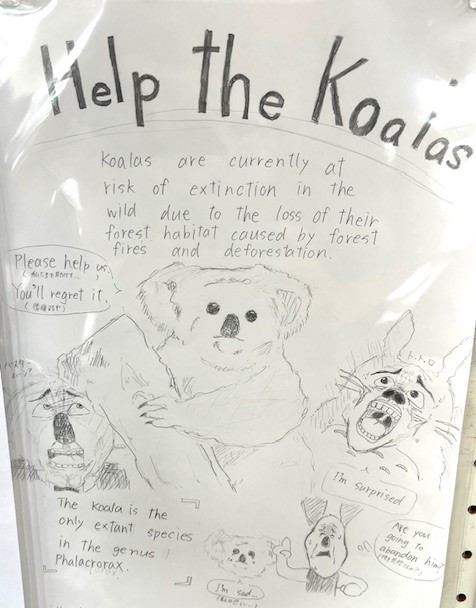 Help the Koalas
Koalas are currently at
risk of extinction in the
wild due to the loss of their
forest habitat caused by forest
fires and deforestation.
Please help us.
You'll regret it.
トトロ
I'm surprised
The koala is the
only extant species
in the genius
Phalacrorax.
Are you
going to
abandon him?
I'm sad...